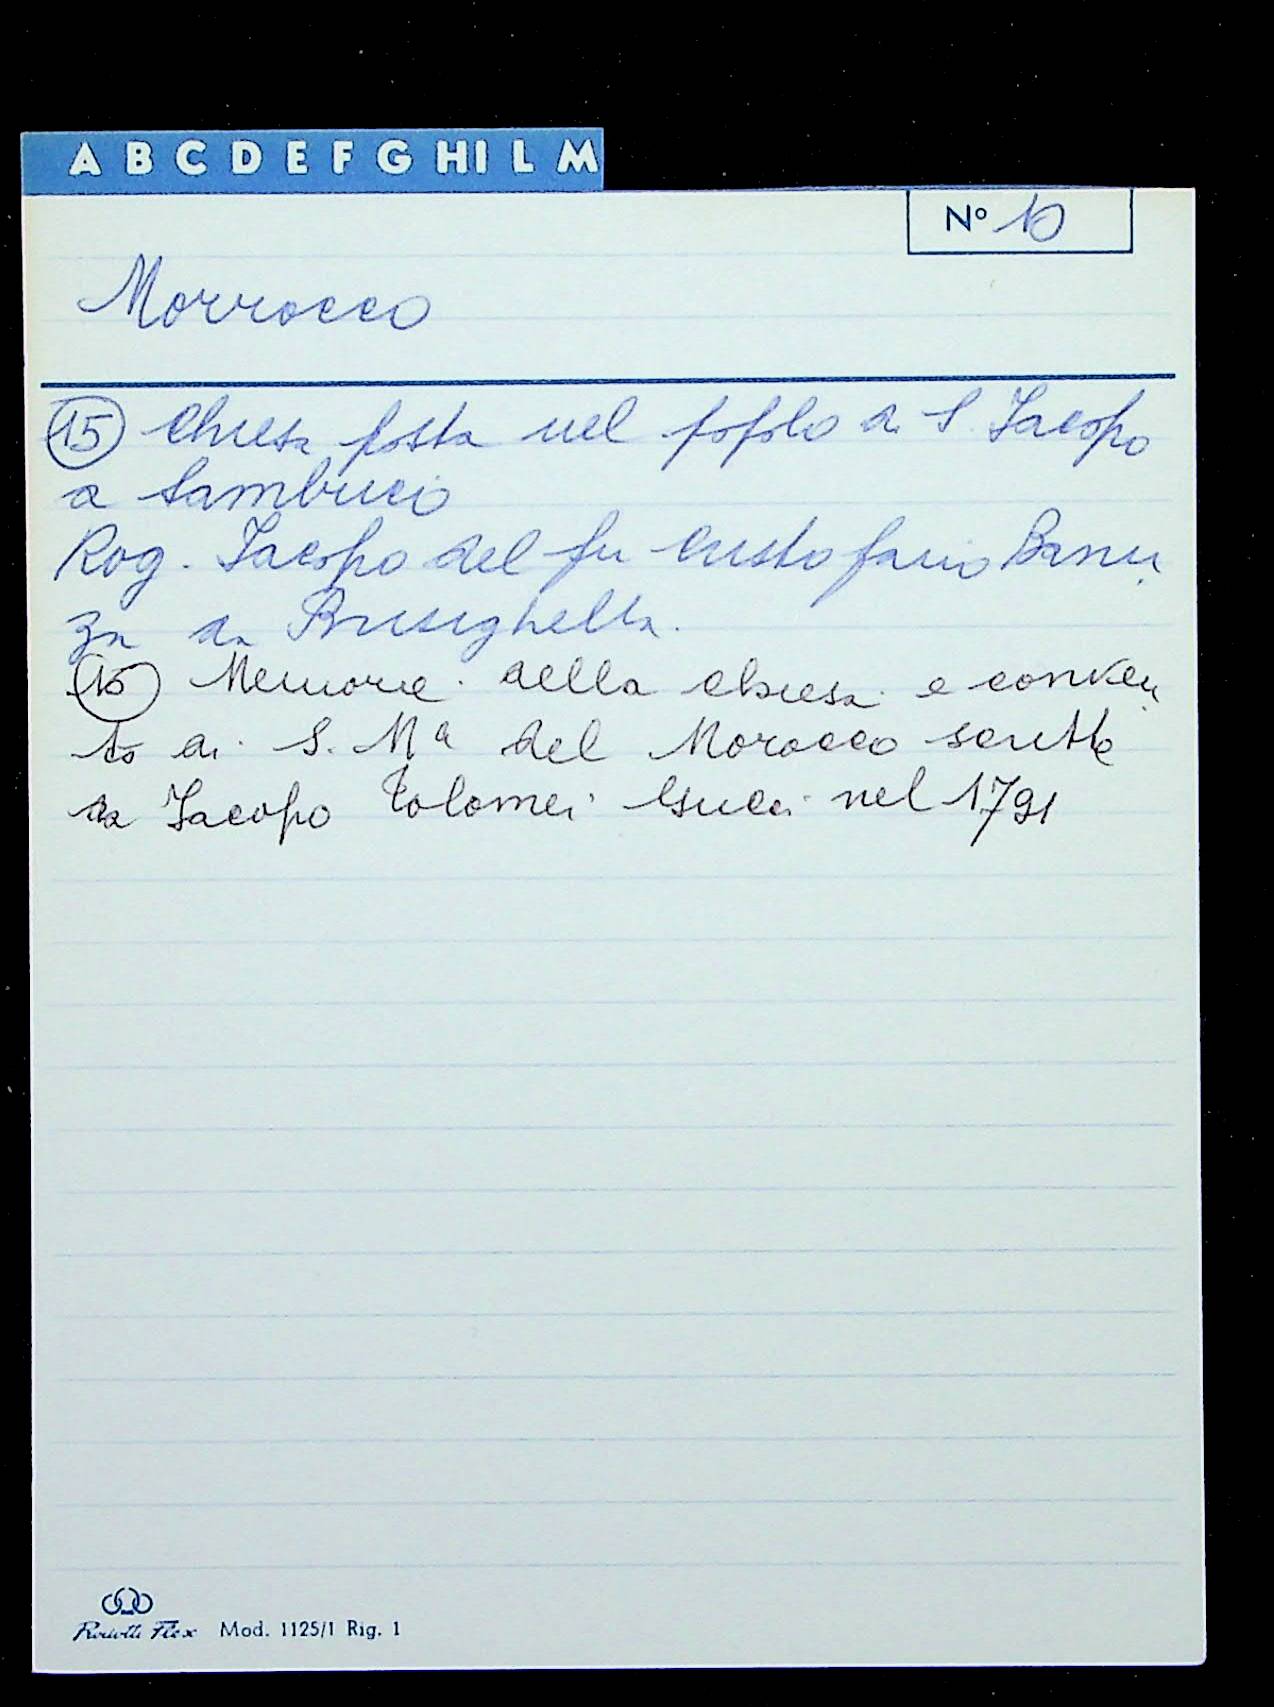 A B C D E F G HI L M
Nº 10
Morrocco
15 Chiesa posta nel popolo di S. Jacopo
a Sambuco
Rog. Jacopo del fu Cristofario Banu
za da Brisighella.
15 Memorie della chiesa e conven
to di S. Mª del Morocco scritte
da Jacopo Tolomei Gucci nel 1791
Mod. 1125/1 Rig. 1